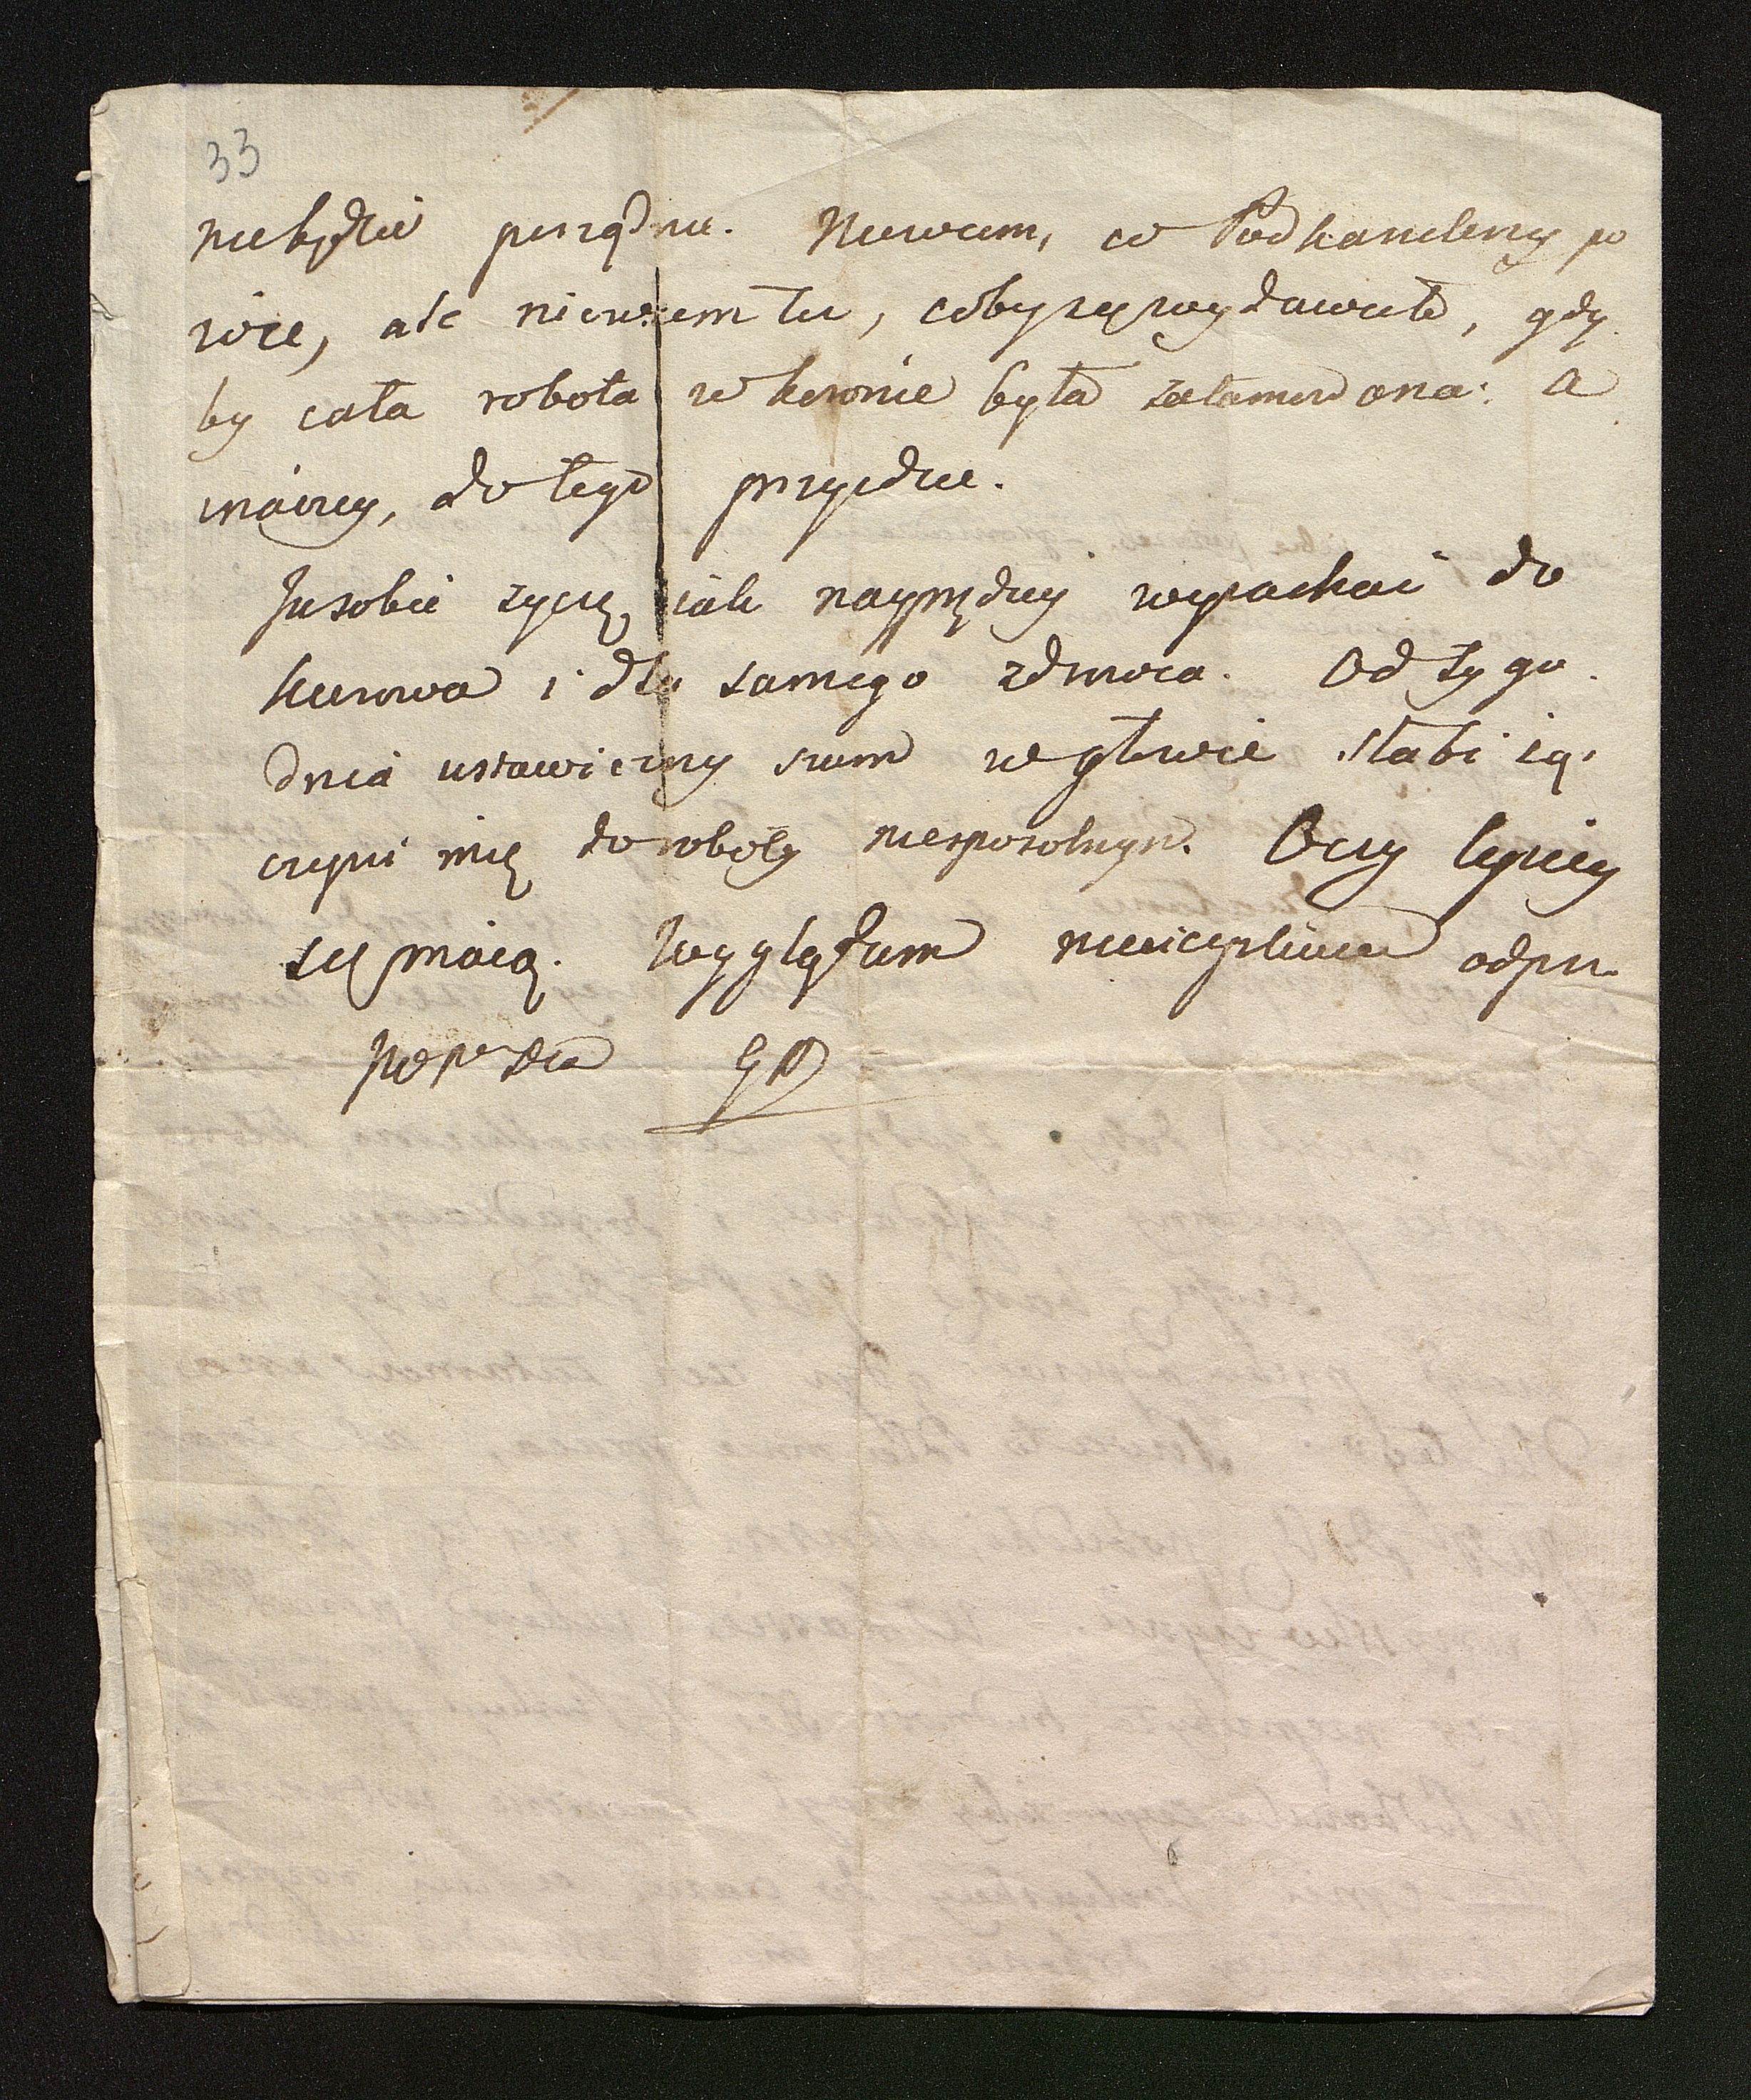 33
niebędzie porządnie. Niewiem, co Podkanclerzy po
wie, ale niewiem tu, coby się wydawało, gdy
by cała robota w koronie była zatamowana: a
inaczey, do tego przyidzie.
Ja sobie życzę, iak nayprędzey wyiachać do
Kurowa i dla samego zdrowia. Od tygo
dnia ustawiczny szum w głowie słabi ią,
czyni mię do roboty niesposobnym. Oczy lepiey
się maią. Wyglądam niecierpliwie odpo